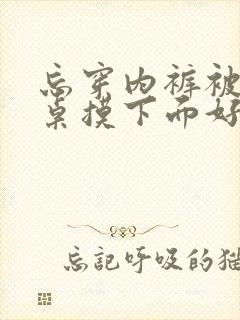 忘穿内裤被
桌摸下面好
忘記呼吸的猫